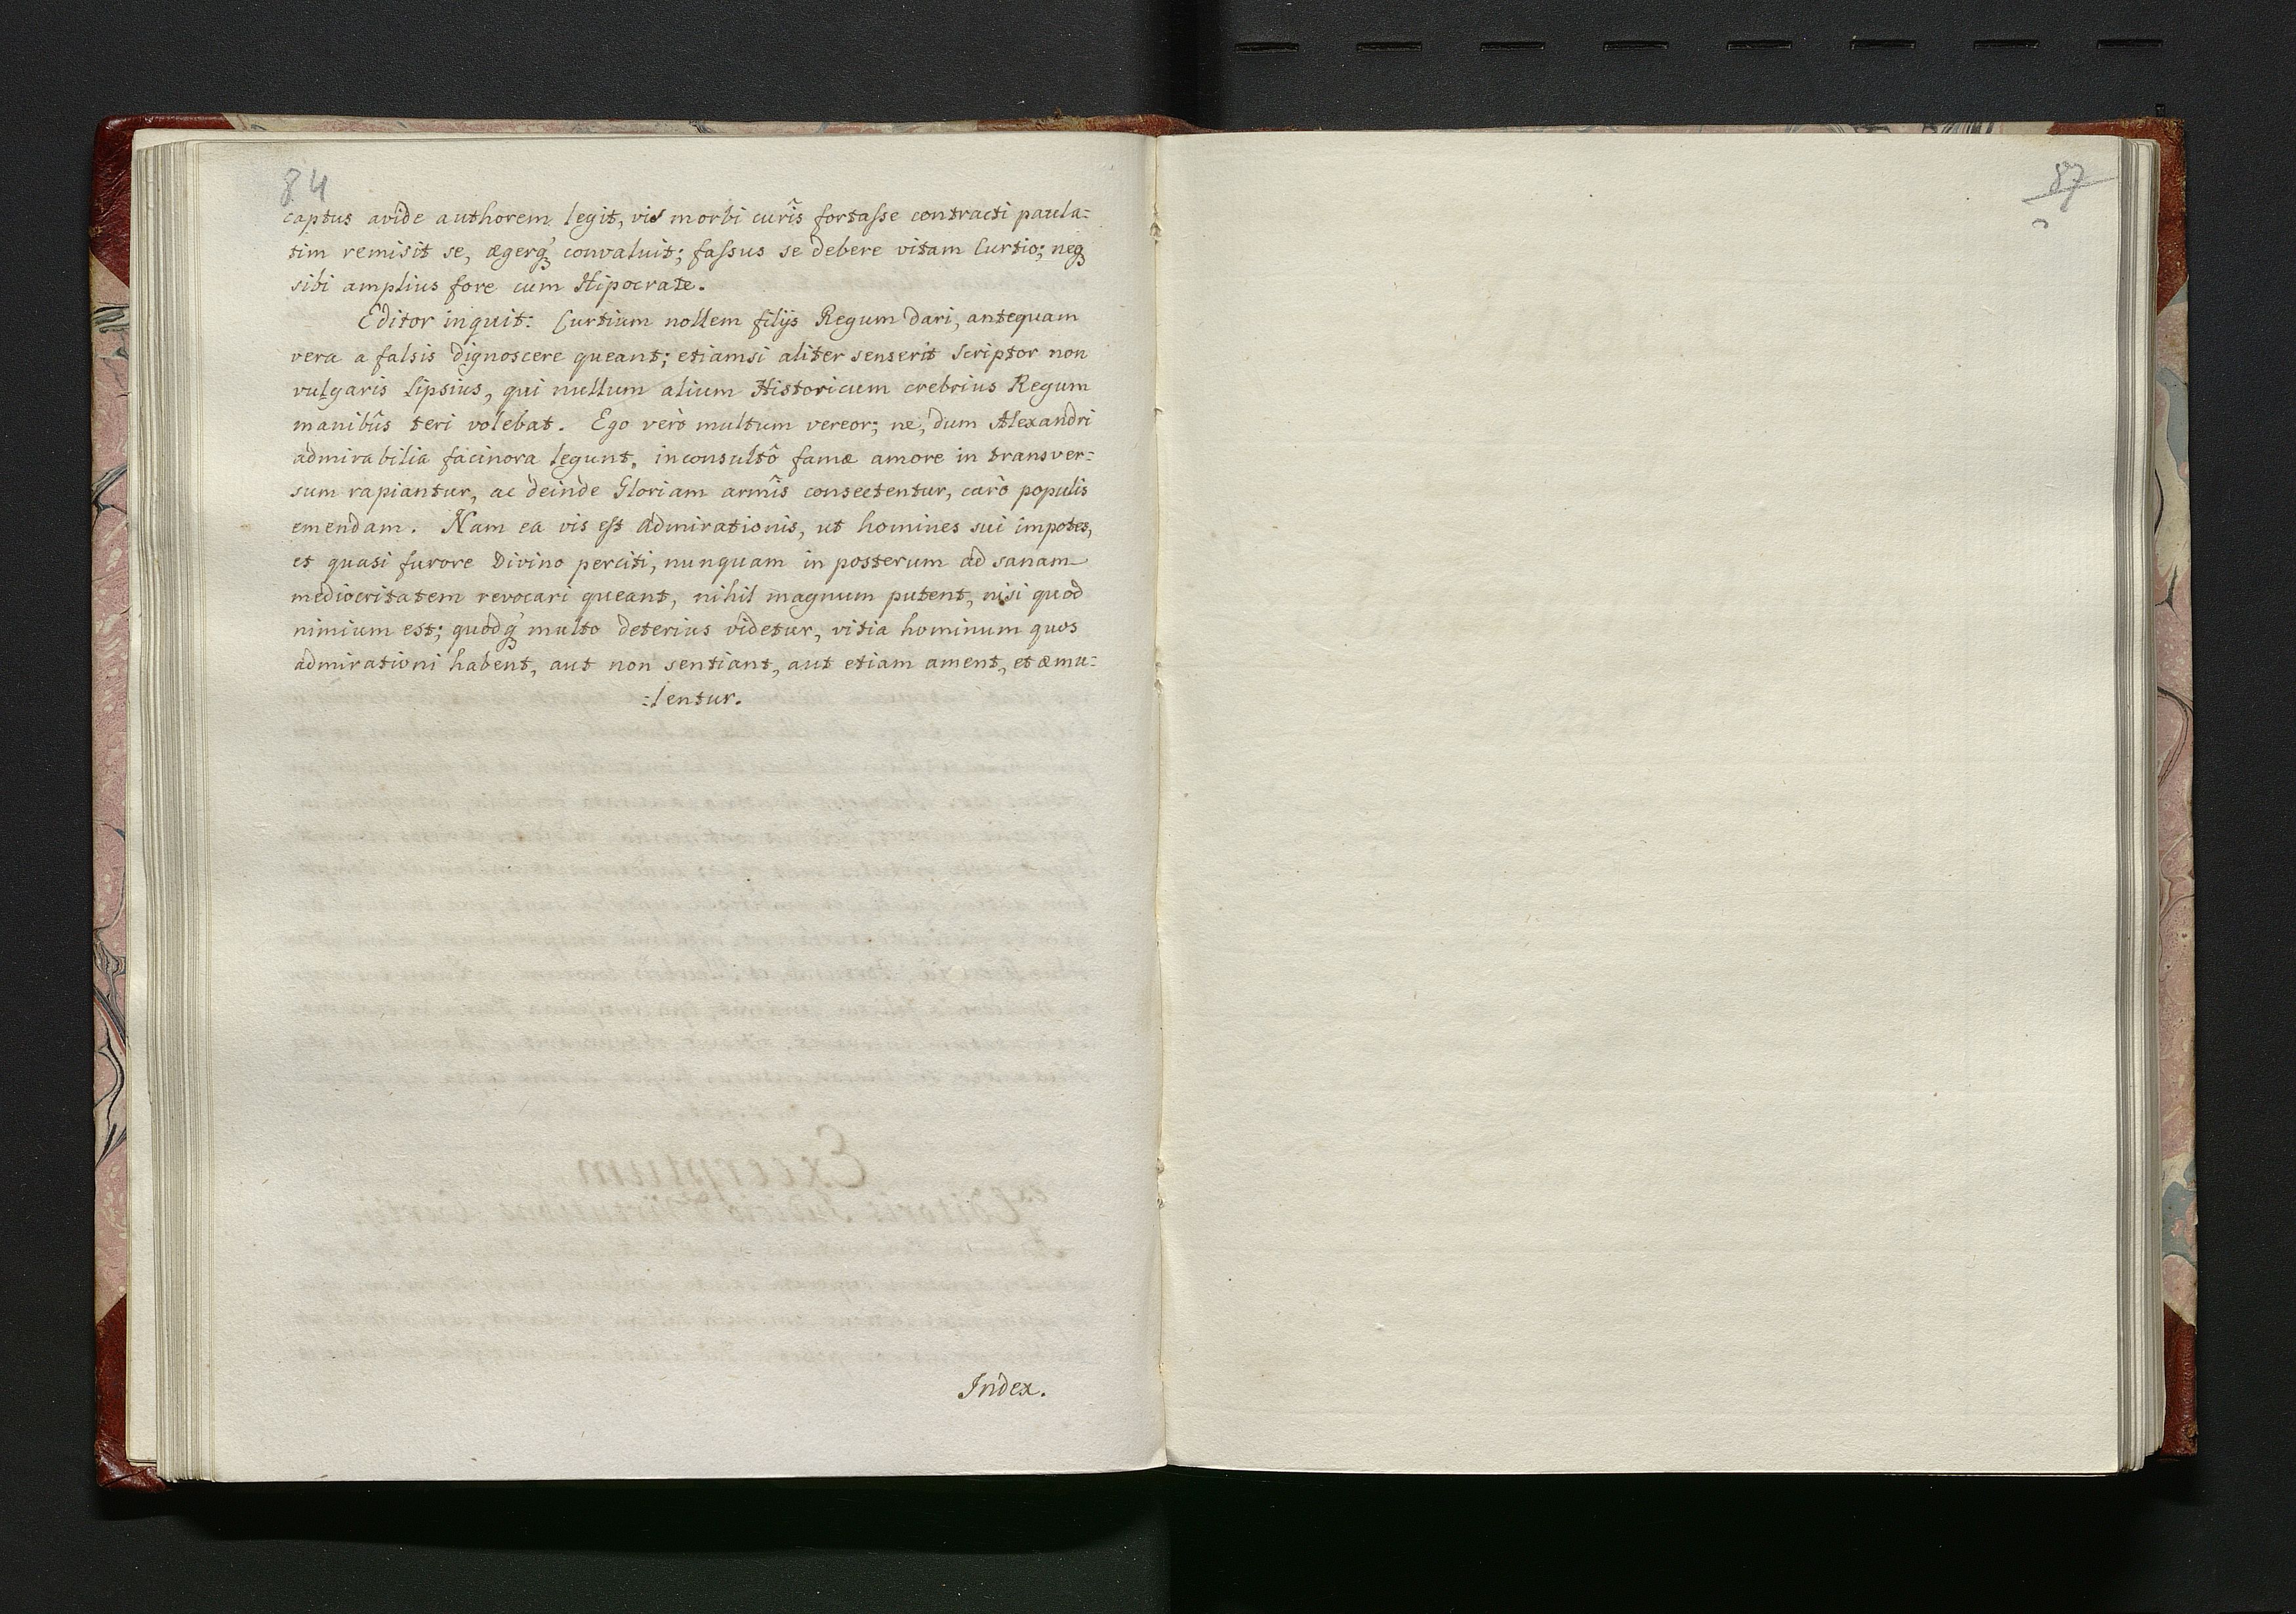 84
captus avide authorem legit, vis morbi curîs fortasse contracti paula=
tim remisit se, ægerq́; convaluit; fassus se debere vitam Curtio; neq;
sibi amplius fore cum Hipocrate.
Editor inquit: Curtium nollem filijs Regum dari, antequam
vera a falsis dignoscere queant; etiamsi aliter senserit scriptor non
vulgaris Lipsius, qui nullum alium Historicum crebrius Regum
manibûs teri volebat. Ego verò multum vereor; ne, dum Alexandri
admirabilia facinora legunt, inconsultô famæ amore in transver=
sum rapiantur, ac deinde Gloriam armîs consectentur, carò populis
emendam. Nam ea vis est admirationis, ut homines sui impotes,
et quasi furore Divino perciti, nunquam in posterum ad sanam
mediocritatem revocari queant, nihil magnum putent, nisi quod
nimium est; quodq́; multo deterius videtur, vitia hominum quos
admirationi habent, aut non sentiant, aut etiam ament, et æmu=
=lentur.
Index.
87